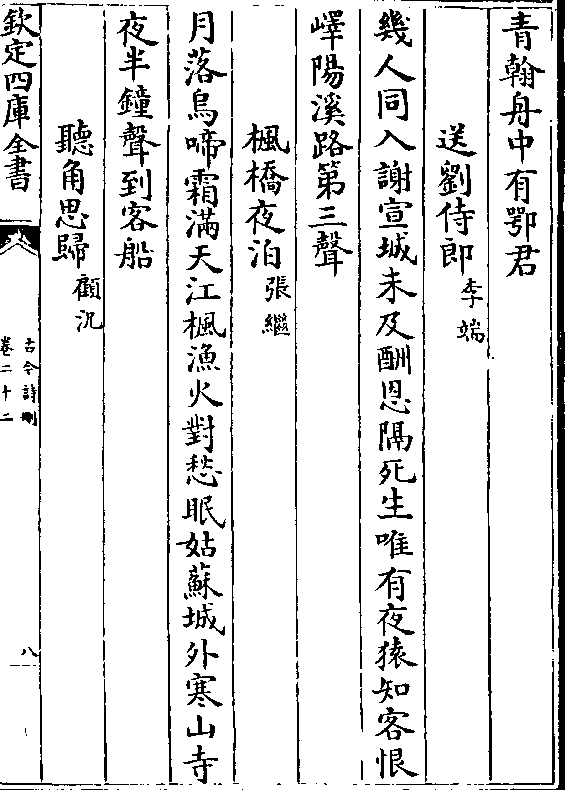 青翰舟中有鄂君
送劉侍郎李端
幾人同入謝宣城未及酬恩隔死生唯有夜猿知客恨
嶧陽溪路第三聲
楓橋夜泊張繼
月落烏啼霜滿天江楓漁火對愁眠姑蘇城外寒山寺
夜半鐘聲到客船
聽角思歸顧況
欽定四庫全書
古今詩刪
卷二十二
八